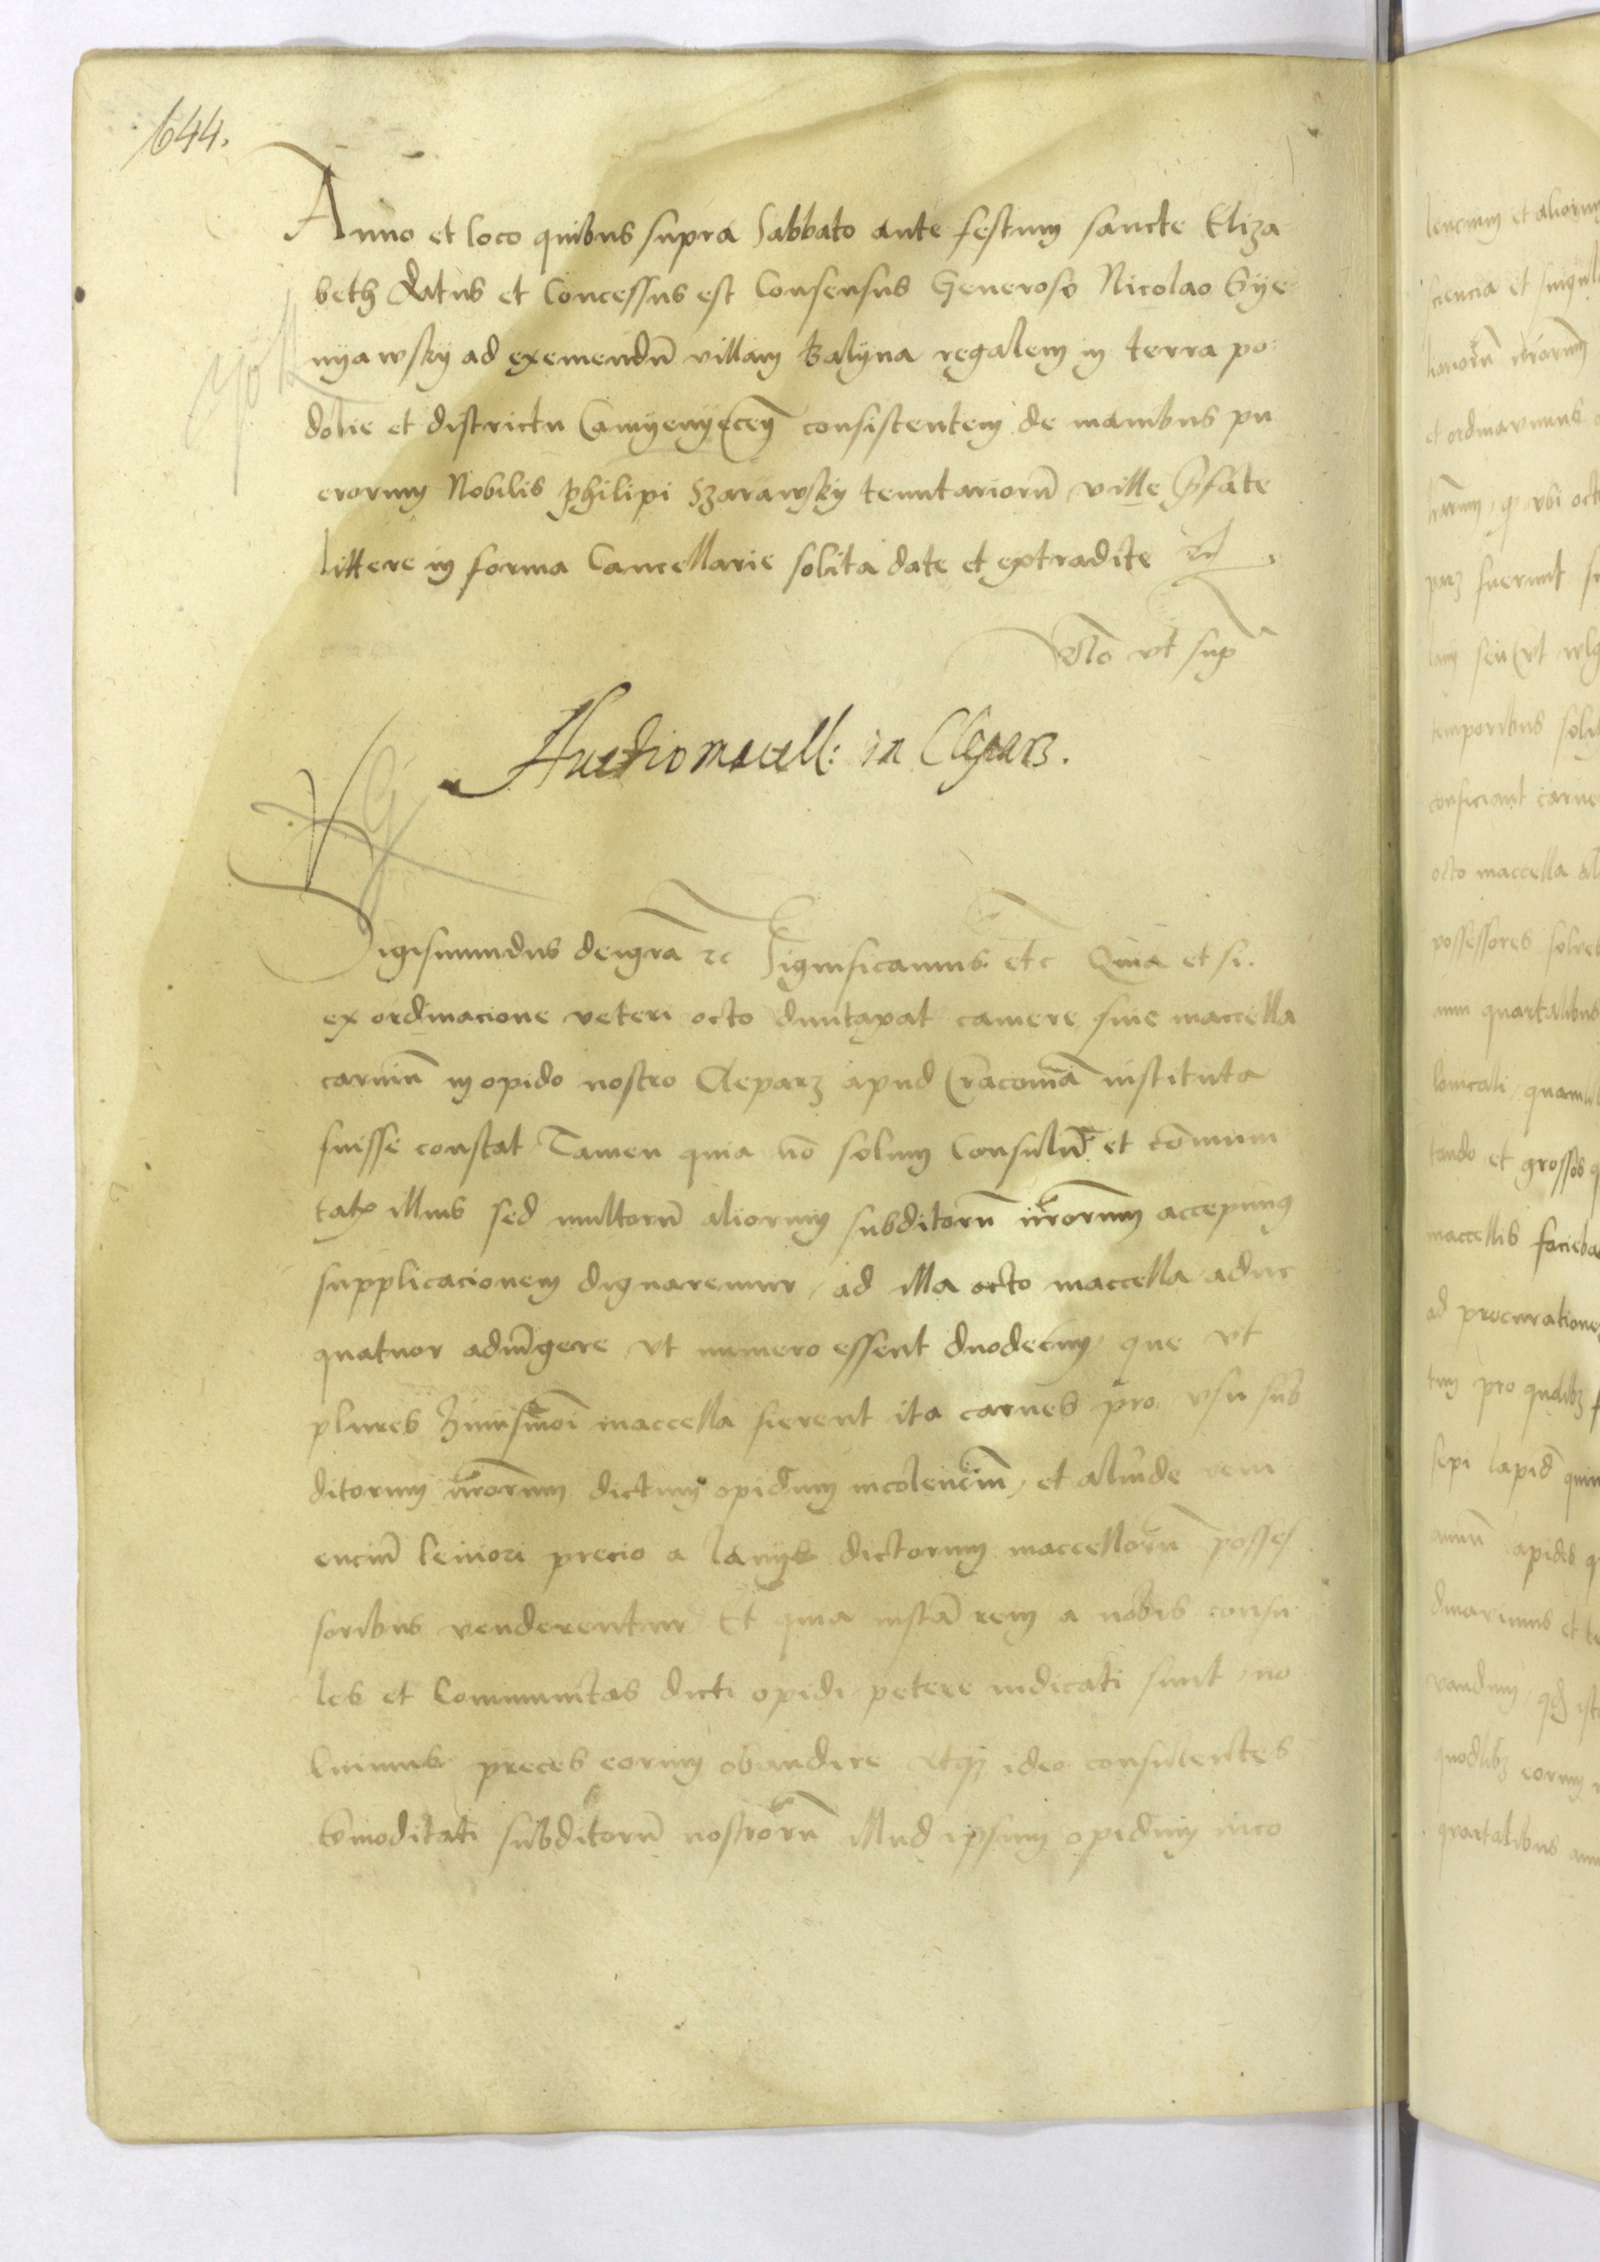 644.
Anno et loco quibus supra Sabbato ante festum sancte Eliza
beth Datus et Concessus est Consensus Generoso Nicolao Sye
nyawsky ad exemendū villam kalyna regalem in terra po
dolie et districtu Camyenyeceñ consistentem de manibus pu
erorum Nobilis Philipi Szarawsky tenutariorū ville p̄fate
littere in forma Cancellarie solita date et extradite
Rlo vt sup̄
Auctio macell: in Clepars.
Sigismundus dei gr̄a rc Significamus etc Quia et si
ex ordinacione veteri octo duntaxat camere siue maccella
carniū in opido nostro Cleparz apud Cracouiā instituta
fuisse constat Tamen quia nō solum Consulū et cōmuni
tatis illius sed multorū aliorum subditorū nr̄orum accepimus
supplicacionem dignaremur ad illa octo maccella aduc
quatuor adiūgere vt numero essent duodecim que vt
plures huiusmōi maccella fierent ita carnes pro vsu sub
ditorum nr̄orum dictum opidum incolenciū et aliūde veni
enciū leuiori precio a lanijs dictorum maccellorū posses
soribus venderentur Et quia iustā rem a nobis consu
les et Communitas dicti opidi petere iudicati sunt no
luimus preces eorum obaudire Atq3 ideo consulentes
cōmoditati subditorū nostrorū illud ipsum opidum inco
lencium et aliorum
et ordinauimus
fuerunt
temporibus
conficiant carne
octo maccella
possessores
num quartalibus
et grossos
maccellis facieba
ad procuratione
tum pro qualibz
sepi lapid
dinarimus et
eorum
quartalibus